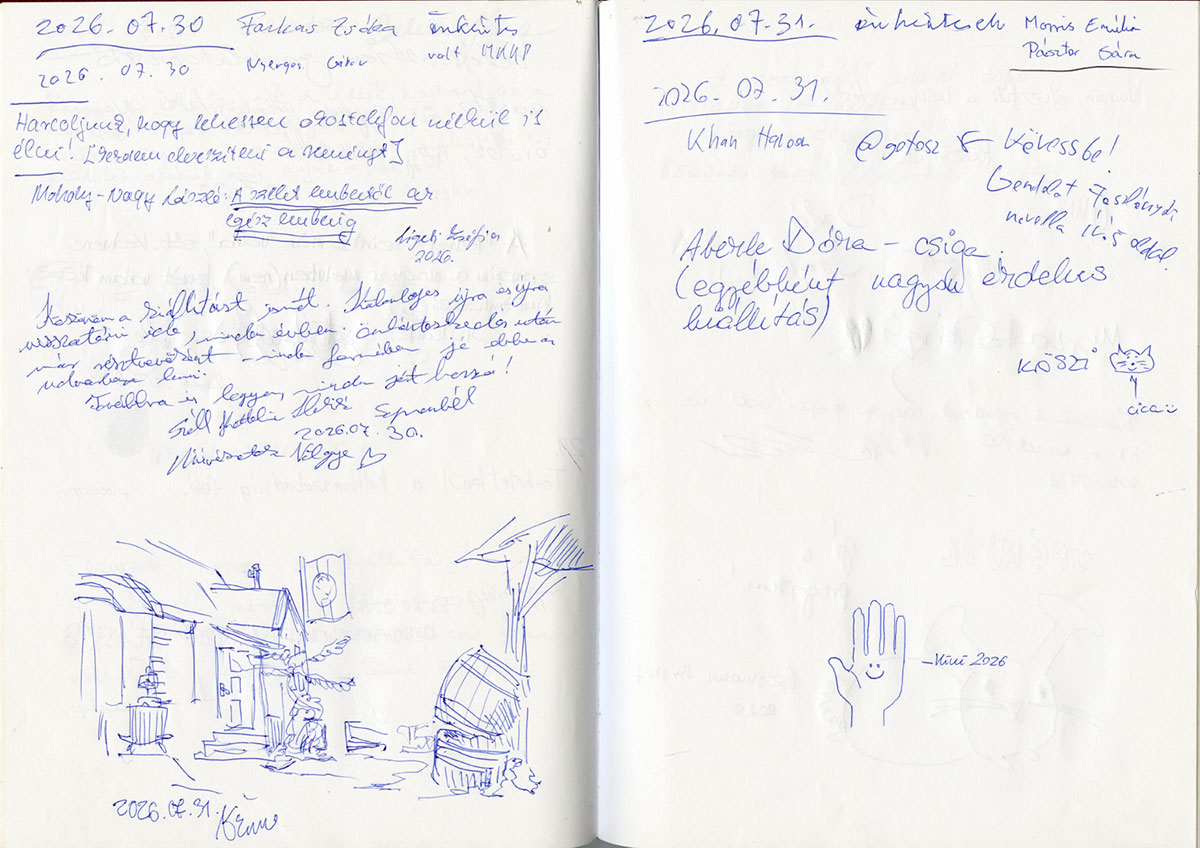 2026. 07. 30 Farkas Zsóka önkéntes
volt MKKP
2026. 07. 30 Nyerges Gábor
Harcoljunk, hogy lehessen okostelefon nélkül is
élni! [Verdem elveszíteni a reményt]
Moholy-Nagy László: A szelet embertől az
egész emberig
Ligeti Zsófia
2026.
Köszönöm a szállítást ismét. Különleges újra és újra
visszatérni ide, minden évben. önkénteskedés után
már résztvevőként - minden formában jó ebben az
udvarban lenni.
Továbbra is legyen minden jót hozzá!
Széll Sopronból
2026.07.30.
Művészetek Völgye
2026.07.31.
2026. 07. 31. önkéntesek Morris Emília
Pásztor Sára
2026. 07. 31.
Khan @gotosz Kövess be!
Gondolat
novella 14.5 oldal.
Aberle Dóra - csiga
(egyébként nagyon érdekes
kiállítás)
KÖSZI
cica
Kini 2026